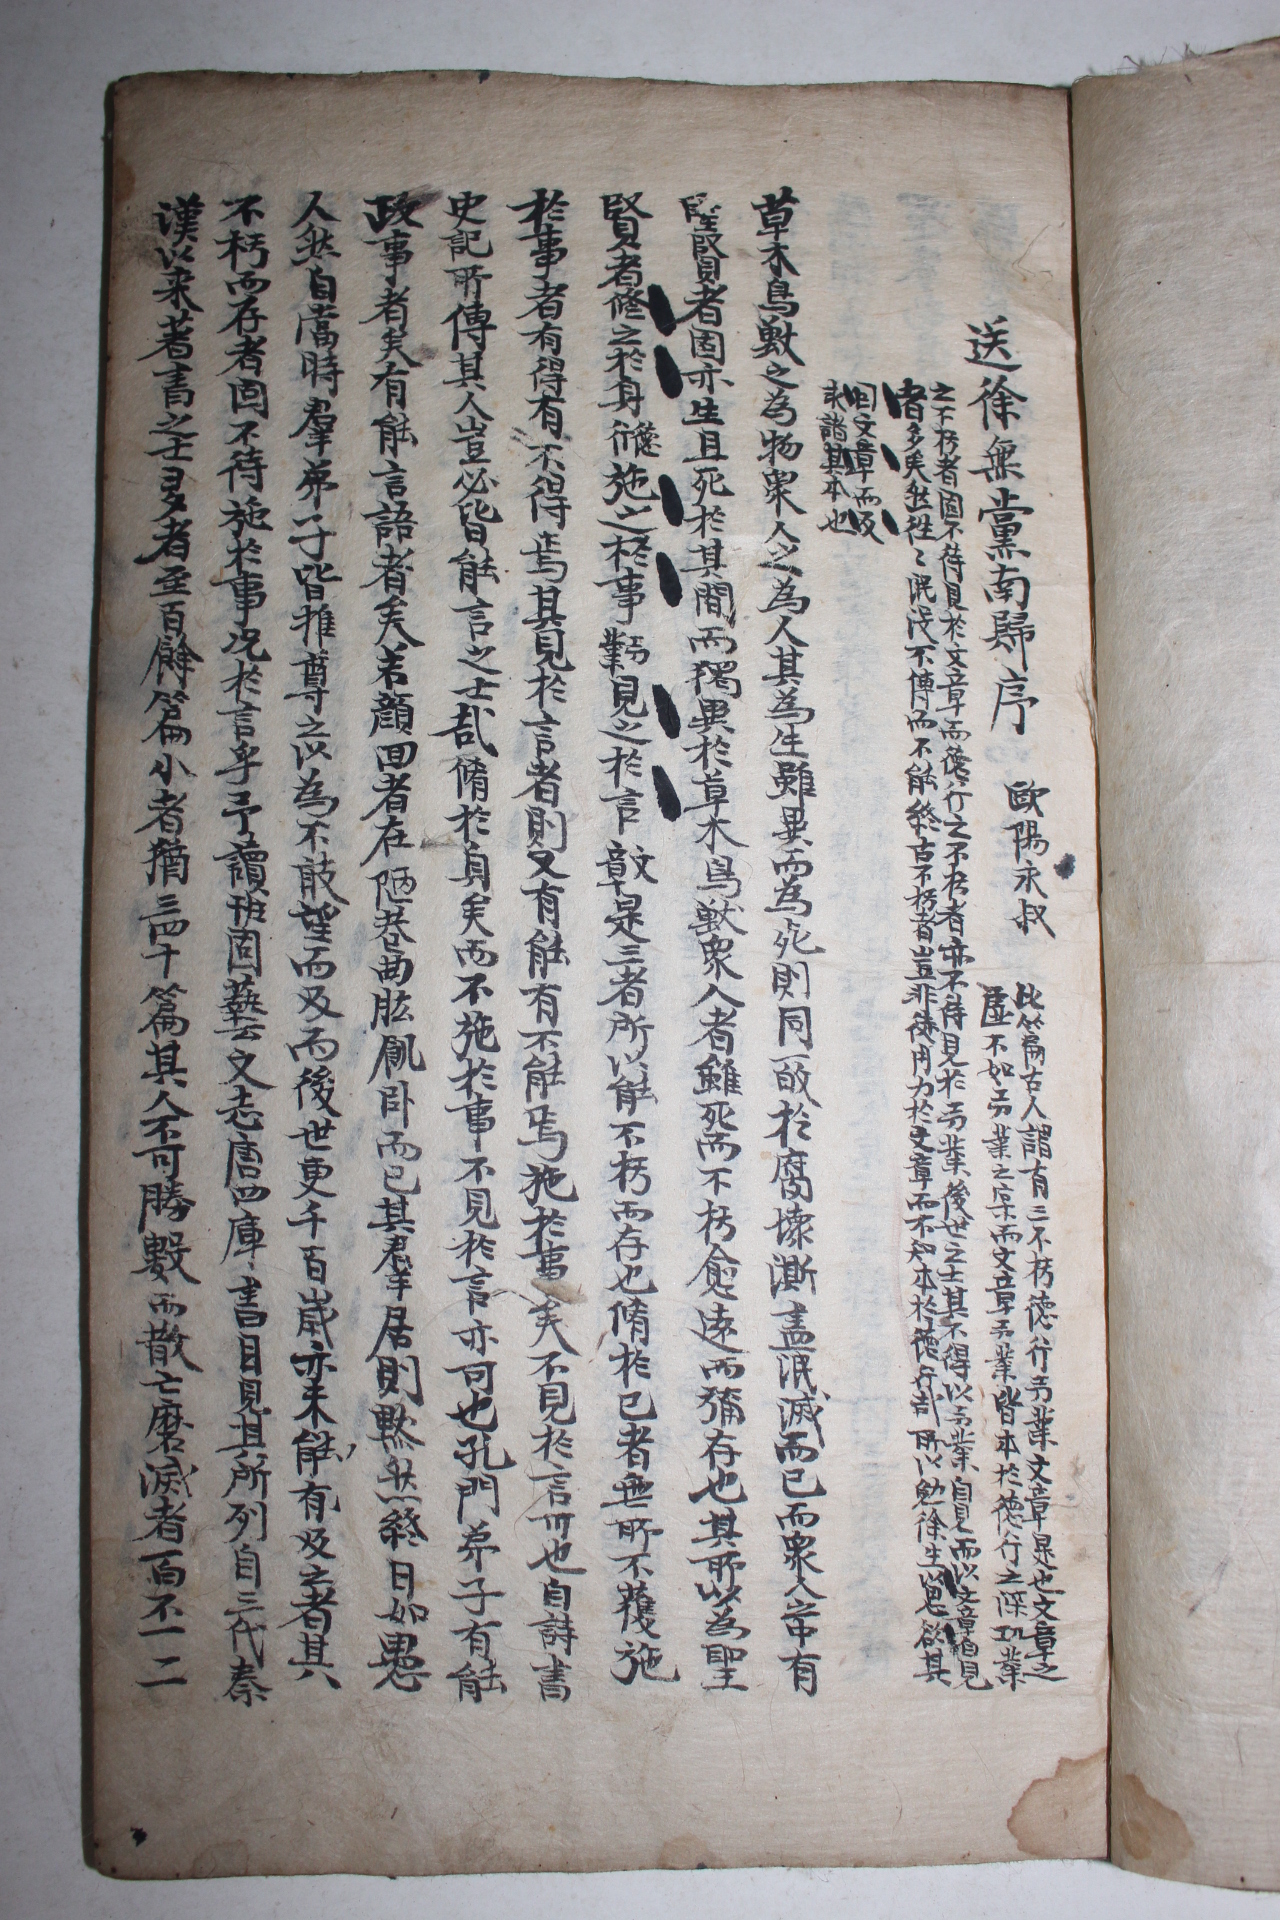 送徐無黨南歸序
歐陽永叔
此篇古人謂有三不朽德行功業文章是也文章之
虛不如功業之实而文章功業皆本於德行之深功業
之不朽者固不待見於文章而德行之不朽者亦不待見於功業後世之士其不得以功業自見而以文章自見
者多矣然往〻泯没不傳而不能終古不朽者豈非徒用力於文章而不知本於德行哉所以勉徐生以思欲其
因文章而反
求諸其本也
草木鳥獸之為物衆人之為人其為生雖異而為死則同一故於腐壞澌盡泯滅而已而衆人之中有
聖賢者固亦生且死於其間而獨異於草木鳥獸衆人者雖死而不朽愈遠而彌存也其所以為聖
賢者修之於身德行施之於事功業見之於言文章是三者所以能不朽而存也脩於已者無所不獲施
於事者有得有不得焉其見於言者則又有能有不能焉施於事矣不見於言可也自詩書
史記所傳其人豈必皆能言之士哉脩於身矣而不施於事不見於言亦可也孔門弟子有能
政事者矣有能言語者矣若顏回者在陋巷曲肱飢臥而已其羣居則黙然終日如愚
人然自當時羣弟子皆推尊之以為不敢望而及而後世更千百歲亦未能有及之者其
不朽而存者固不待施於事况於言乎予讀班固藝文志唐四庫書目見其所列自三代秦
漢以来著書之士多者至百餘篇小者猶三四十篇其人不可勝數而散亡磨滅者百不一二